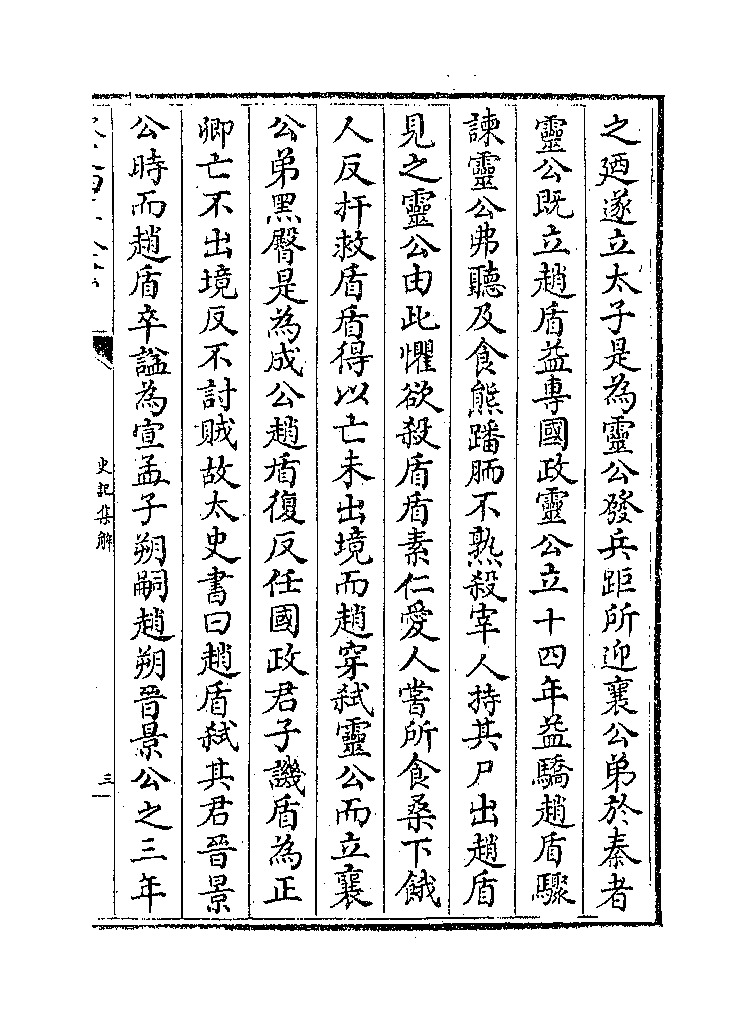 之廼遂立太子是為靈公發兵距所迎襄公弟於秦者
靈公既立趙盾益專國政靈公立十四年益驕趙盾驟
諫靈公弗聽及食熊蹯胹不熟殺宰人持其尸出趙盾
見之靈公由此懼欲殺盾盾素仁愛人嘗所食桑下餓
人反扞救盾盾得以亡未出境而趙穿弒靈公而立襄
公弟黑臀是為成公趙盾復反任國政君子譏盾為正
卿亡不出境反不討賊故太史書曰趙盾弒其君晉景
公時而趙盾卒諡為宣孟子朔嗣趙朔晉景公之三年
史記集解
三